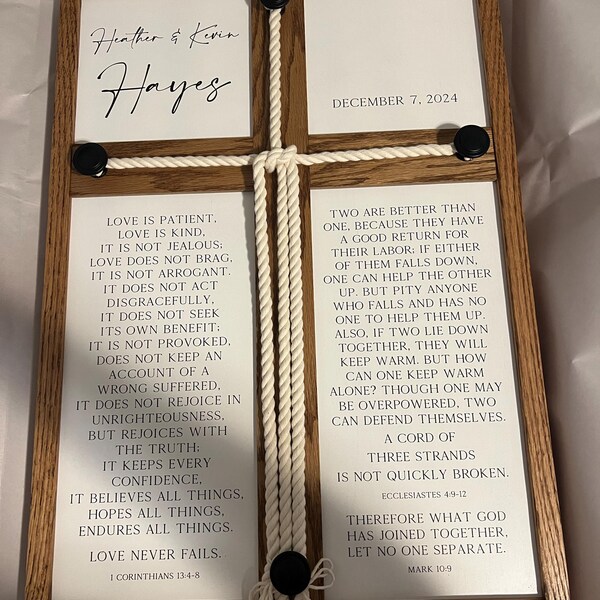 Heather & Kevin
Hayes
DECEMBER 7, 2024
LOVE IS PATIENT,
LOVE IS KIND,
IT IS NOT JEALOUS;
LOVE DOES NOT BRAG,
IT IS NOT ARROGANT.
IT DOES NOT ACT
DISGRACEFULLY,
IT DOES NOT SEEK
ITS OWN BENEFIT;
IT IS NOT PROVOKED,
DOES NOT KEEP AN
ACCOUNT OF A
WRONG SUFFERED,
IT DOES NOT REJOICE IN
UNRIGHTEOUSNESS,
BUT REJOICES WITH
THE TRUTH;
IT KEEPS EVERY
CONFIDENCE,
IT BELIEVES ALL THINGS,
HOPES ALL THINGS,
ENDURES ALL THINGS.
LOVE NEVER FAILS.
1 CORINTHIANS 13:4-8
TWO ARE BETTER THAN
ONE, BECAUSE THEY HAVE
A GOOD RETURN FOR
THEIR LABOR: IF EITHER
OF THEM FALLS DOWN,
ONE CAN HELP THE OTHER
UP. BUT PITY ANYONE
WHO FALLS AND HAS NO
ONE TO HELP THEM UP.
ALSO, IF TWO LIE DOWN
TOGETHER, THEY WILL
KEEP WARM. BUT HOW
CAN ONE KEEP WARM
ALONE? THOUGH ONE MAY
BE OVERPOWERED, TWO
CAN DEFEND THEMSELVES.
A CORD OF
THREE STRANDS
IS NOT QUICKLY BROKEN.
ECCLESIASTES 4:9-12
THEREFORE WHAT GOD
HAS JOINED TOGETHER,
LET NO ONE SEPARATE.
MARK 10:9